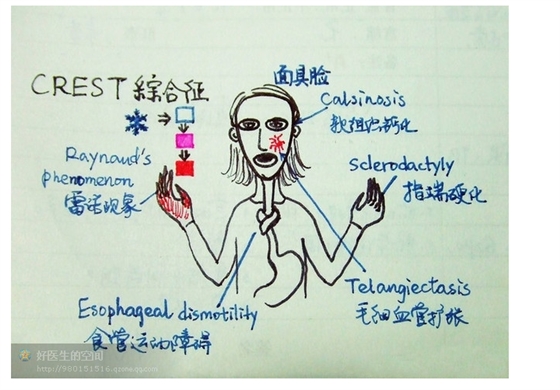 面具脸
CREST 綜合征
Calsinosis
软组织钙化
Raynaud's
phenomenon
雷诺现象
sclerodactyly
指端硬化
Telangiectasis
毛细血管扩张
Esophageal dismotility
食管运动障碍
好医生的空间
http://980151516.qzone.qq.com